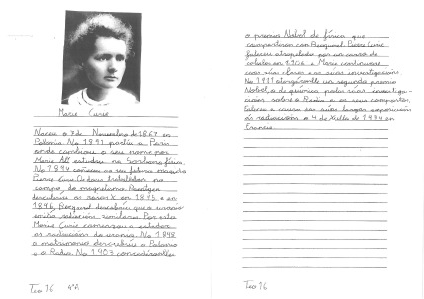 Marie Curie
Naceu o 7 de Novembro de 1867 en
Polonia. No 1891 partiu a París
onde cambiou o seu nome por
Marie. Alí estudou na Sorbona física.
No 1894 coñeceu ao seu futuro marido
Pierre Curie. Os dous traballaban no
campo do magnetismo. Roentgen
descubriu os raios X en 1895, e en
1896, Becquerel descubriu que o uranio
emitía radiacións similares. Por isto
Marie Curie comenzou a estudar
as radiacións do uranio. No 1898
o matrimonio descubriu o Polonio
e o Radio. No 1903 concedéronlles
Tea 76 4ºA
o premio Nobel de física que
compartiron con Becquerel. Pierre Curie
faleceu atropelado por un carro de
cabalos en 1906 e Marie continuou
coas súas clases e as súas investigacións.
No 1911 otorgáronlle un segundo premio
Nobel, o de química polas súas investiga-
cións sobre o Radio e os seus compostos.
Faleceu a causa das súas largas exposicións
ás radiacións o 4 de Xullo de 1934 en
Francia.
Tea 76